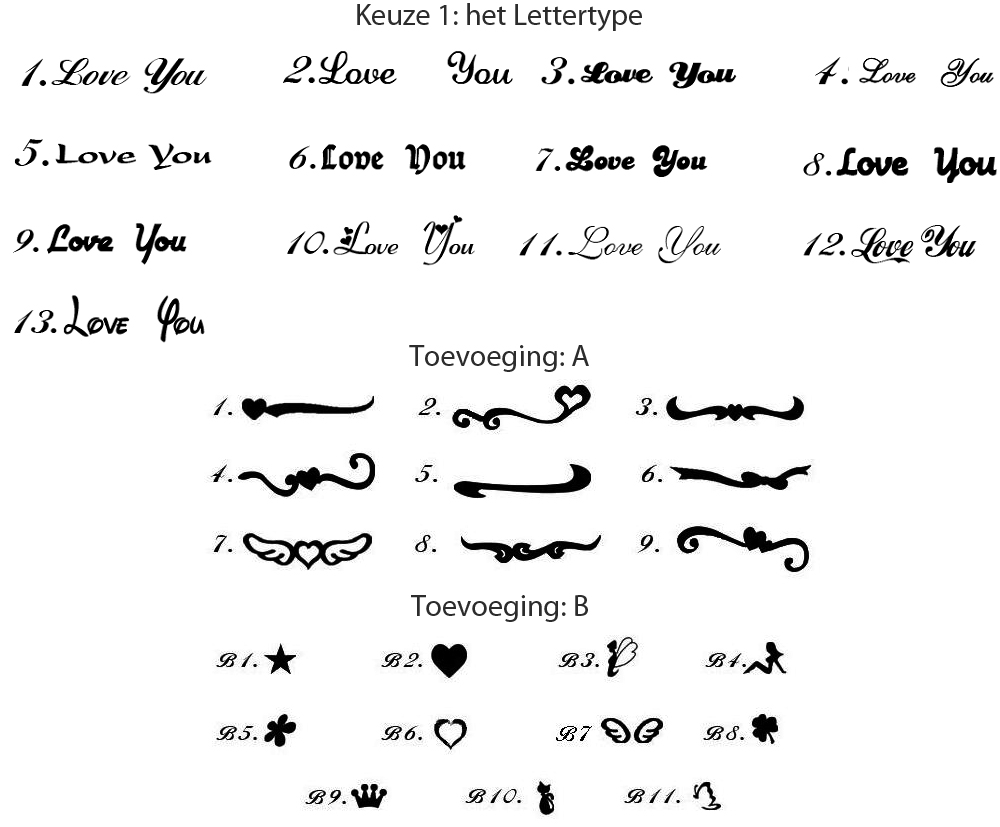 Keuze 1: het Lettertype
1. Love You 2. Love You 3. Love You 4. Love You
5. Love You 6. Love You 7. Love You 8. Love You
9. Love You 10. Love You 11. Love You 12. Love You
13. Love You
Toevoeging: A
1. 2. 3.
4. 5. 6.
7. 8. 9.
Toevoeging: B
B1. B2. B3. B4.
B5. B6. B7 B8.
B9. B10. B11.